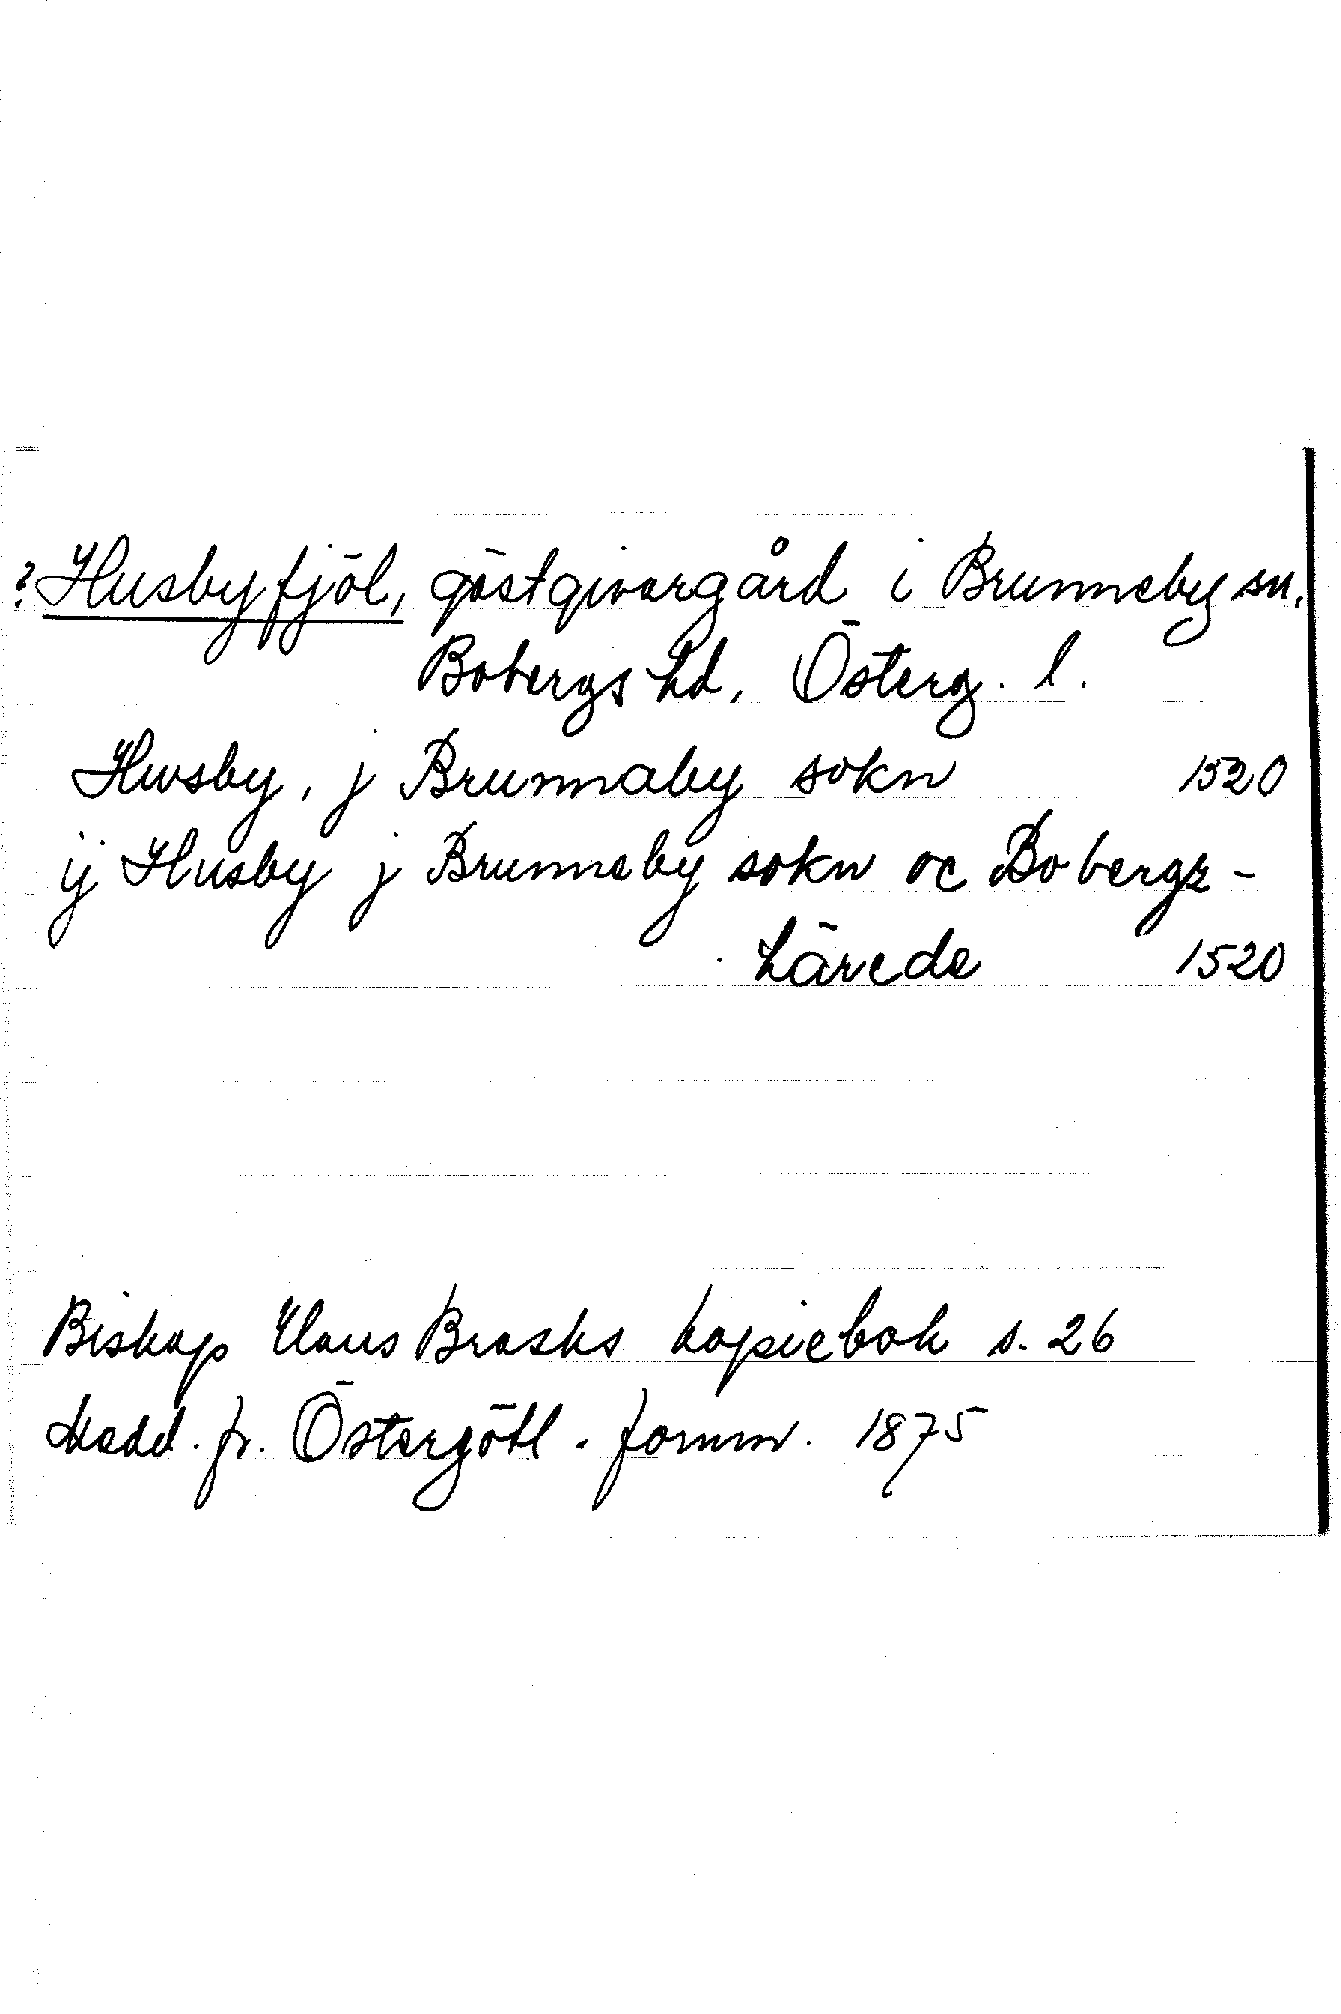 ? Husbyfjöl, gästgivargård i Brunneby sn.
Bobergs hd, Österg. l.
Hwsby, j Brunnaby sokn 1520
ij Husby j Brunneby sokn oc Bobergz-
härede 1520
Biskop Hans Brasks kopiebok s. 26
Medd. fr. Östergötl. fornm. 1875